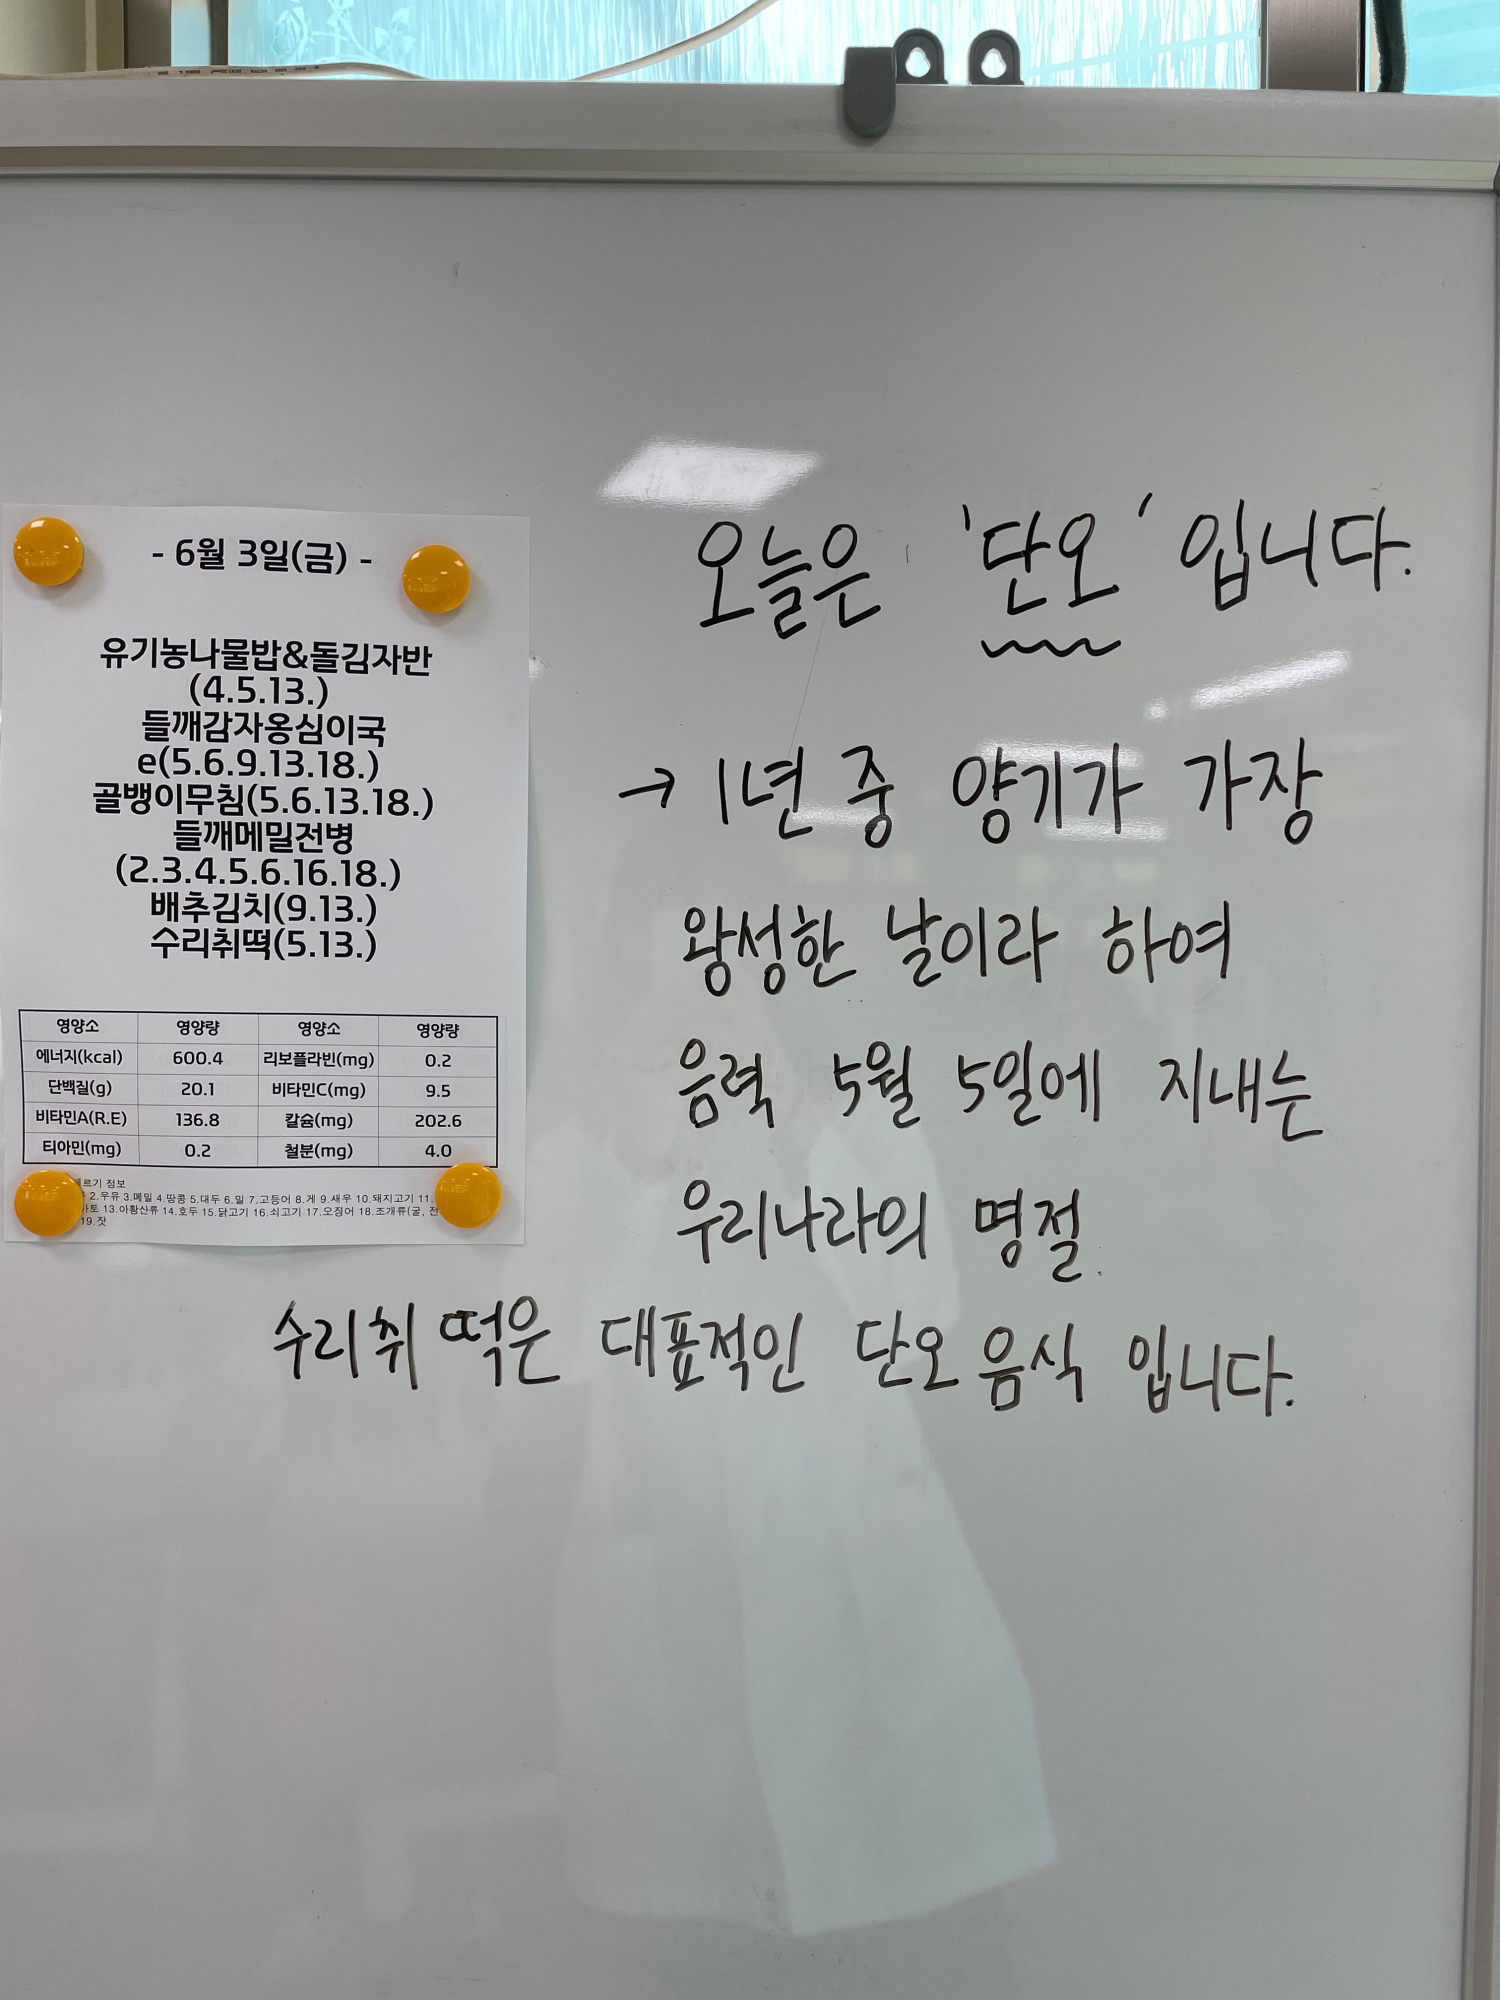 - 6월 3일(금) -
유기농나물밥&돌김자반
(4.5.13.)
들깨감자옹심이국
e(5.6.9.13.18.)
골뱅이무침(5.6.13.18.)
들깨메밀전병
(2.3.4.5.6.16.18.)
배추김치(9.13.)
수리취떡(5.13.)
영양소 영양량 영양소 영양량
에너지(kcal) 600.4 리보플라빈(mg) 0.2
단백질(g) 20.1 비타민C(mg) 9.5
비타민A(R.E) 136.8 칼슘(mg) 202.6
티아민(mg) 0.2 철분(mg) 4.0
정보
2.우유 3.메밀 4.땅콩 5.대두 6.밀 7.고등어 8.게 9.새우 10.돼지고기 11.
13.아황산류 14.호두 15.닭고기 16.쇠고기 17.오징어 18.조개류(굴, 전
19.잣
오늘은 '단오' 입니다.
→ 1년 중 양기가 가장
왕성한 날이라 하여
음력 5월 5일에 지내는
우리나라의 명절.
수리취 떡은 대표적인 단오 음식 입니다.